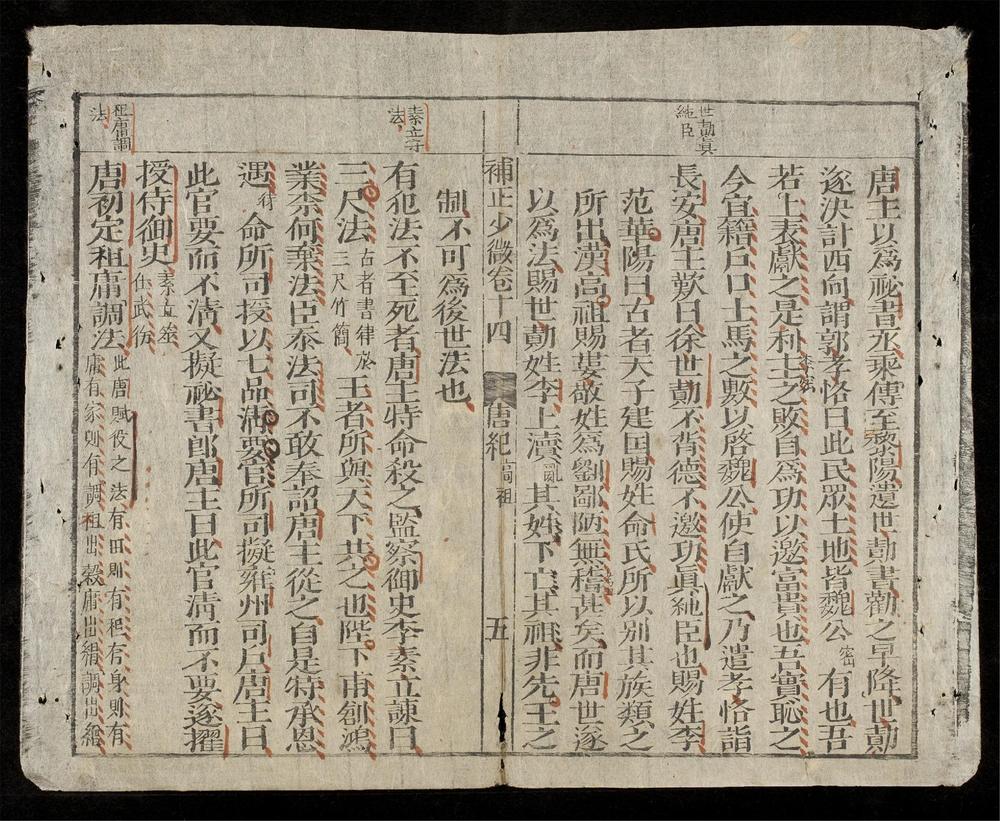 世勣眞
純臣
唐主以爲祕書丞乘傳至黎陽遺世勣書勸之早降世勣
遂決計西向謂郭孝恪曰此民眾土地皆魏公密有也吾
若上表獻之是利主之敗自爲功以邀富貴也吾實恥之
李密
今宜籍戶口士馬之數以啓魏公使自獻之乃遣孝恪詣
長安唐主歎曰徐世勣不背德不邀功眞純臣也賜姓李
范華陽曰古者天子建国賜姓命氏所以别其族類之
所出漢高祖賜婁敬姓爲劉鄙陋無稽甚矣而唐世遂
以爲法賜世勣姓李上瀆亂其姓下亡其祖非先王之
制不可爲後世法也
補正少微卷十四 唐紀高祖 五
素立守
法
有犯法不至死者唐主特命殺之監察御史李素立諫曰
三尺法古者書律於三尺竹簡王者所與天下共之也陛下甫創鴻
業柰何棄法臣忝法司不敢奉詔唐主從之自是特承恩
遇待命所司授以七品淸要官所司擬雍州司戶唐主曰
此官要而不淸又擬祕書郎唐主曰此官淸而不要遂擢
授侍御史素立
仕武
租庸調
法
唐初定租庸調法此唐賦役之法有田則有租有身則有
庸有家則有調租出穀庸出絹調出繒